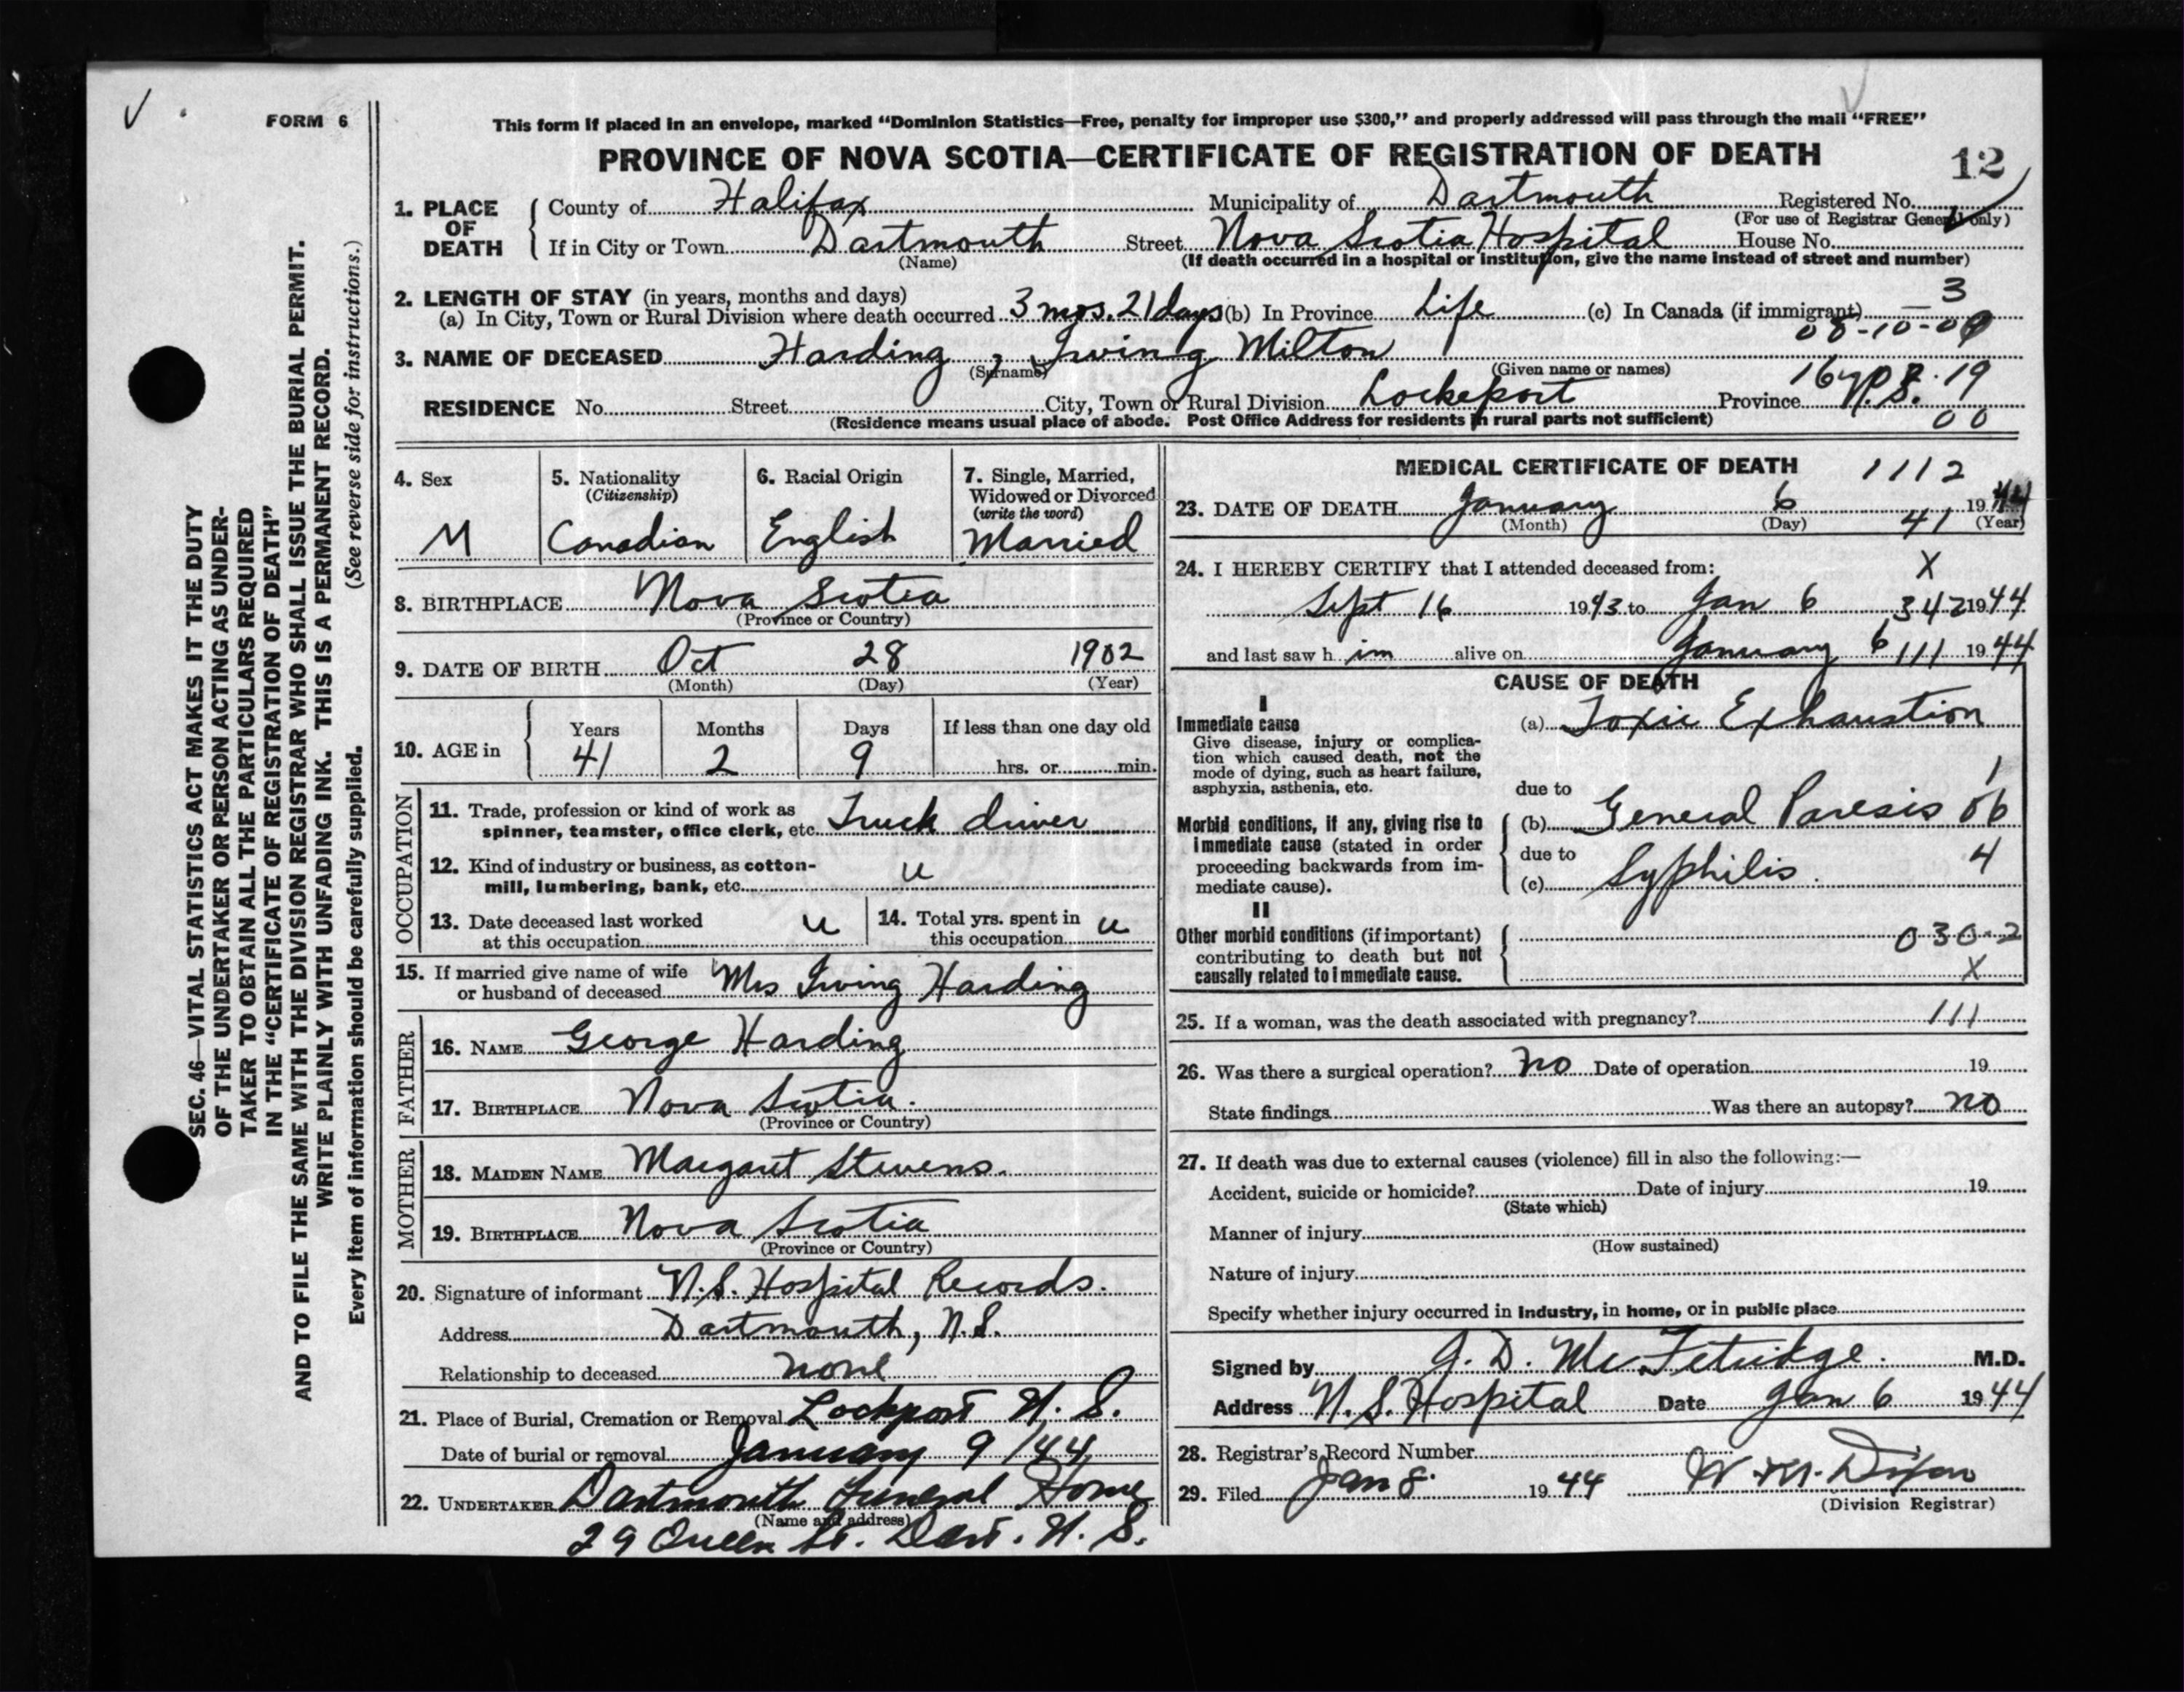 FORM 6
This form if placed in an envelope, marked "Dominion Statistics—Free, penalty for improper use $300," and properly addressed will pass through the mail "FREE"
PROVINCE OF NOVA SCOTIA—CERTIFICATE OF REGISTRATION OF DEATH
12
1. PLACE OF DEATH
County of Halifax Municipality of Dartmouth Registered No.
(For use of Registrar General only)
If in City or Town Dartmouth Street Nova Scotia Hospital House No.
(Name) (If death occurred in a hospital or institution, give the name instead of street and number)
2. LENGTH OF STAY (in years, months and days)
(a) In City, Town or Rural Division where death occurred 3 mos. 21 days (b) In Province Life (c) In Canada (if immigrant) — 3
3. NAME OF DECEASED Harding, Irving Milton
(Surname) (Given name or names)
RESIDENCE No. Street City, Town or Rural Division Lockeport Province N.S. 19
(Residence means usual place of abode. Post Office Address for residents in rural parts not sufficient) 00
4. Sex
M
5. Nationality
(Citizenship)
Canadian
6. Racial Origin
English
7. Single, Married,
Widowed or Divorced
(write the word)
Married
8. BIRTHPLACE Nova Scotia
(Province or Country)
9. DATE OF BIRTH Oct 28 1902
(Month) (Day) (Year)
10. AGE in
Years Months Days If less than one day old
41 2 9 hrs. or min.
OCCUPATION
11. Trade, profession or kind of work as
spinner, teamster, office clerk, etc. Truck driver
12. Kind of industry or business, as cotton-
mill, lumbering, bank, etc. u
13. Date deceased last worked
at this occupation u
14. Total yrs. spent in
this occupation u
15. If married give name of wife
or husband of deceased Mrs Irving Harding
FATHER
16. NAME George Harding
17. BIRTHPLACE Nova Scotia.
(Province or Country)
MOTHER
18. MAIDEN NAME Margaret Stevens.
19. BIRTHPLACE Nova Scotia
(Province or Country)
20. Signature of informant N.S. Hospital Records.
Address Dartmouth, N.S.
Relationship to deceased none
21. Place of Burial, Cremation or Removal Lockport N. S.
Date of burial or removal January 9/44
22. UNDERTAKER Dartmouth Funeral Home
(Name and address)
29 Queen St. Dart. N. S.
MEDICAL CERTIFICATE OF DEATH 1112
23. DATE OF DEATH January 6 1944
(Month) (Day) 41 (Year)
24. I HEREBY CERTIFY that I attended deceased from: X
Sept 16 1943 to Jan 6 342 1944
and last saw h im alive on January 6 111 1944
CAUSE OF DEATH
I
Immediate cause
Give disease, injury or complica-
tion which caused death, not the
mode of dying, such as heart failure,
asphyxia, asthenia, etc.
(a) Toxic Exhaustion
1
due to
Morbid conditions, if any, giving rise to
immediate cause (stated in order
proceeding backwards from im-
mediate cause).
(b) General Paresis 06
due to 4
(c) Syphilis.
II
Other morbid conditions (if important)
contributing to death but not
causally related to immediate cause.
030-2
X
25. If a woman, was the death associated with pregnancy? 111
26. Was there a surgical operation? No Date of operation 19
State findings Was there an autopsy? no
27. If death was due to external causes (violence) fill in also the following:—
Accident, suicide or homicide? Date of injury 19
(State which)
Manner of injury
(How sustained)
Nature of injury
Specify whether injury occurred in industry, in home, or in public place
Signed by G. D. McFetridge. M.D.
Address N.S. Hospital Date Jan 6 1944
28. Registrar's Record Number
29. Filed Jan 8. 1944 W. M. Dixon
(Division Registrar)
SEC. 46—VITAL STATISTICS ACT MAKES IT THE DUTY
OF THE UNDERTAKER OR PERSON ACTING AS UNDER-
TAKER TO OBTAIN ALL THE PARTICULARS REQUIRED
IN THE "CERTIFICATE OF REGISTRATION OF DEATH"
AND TO FILE THE SAME WITH THE DIVISION REGISTRAR WHO SHALL ISSUE THE BURIAL PERMIT.
WRITE PLAINLY WITH UNFADING INK. THIS IS A PERMANENT RECORD.
Every item of information should be carefully supplied. (See reverse side for instructions.)